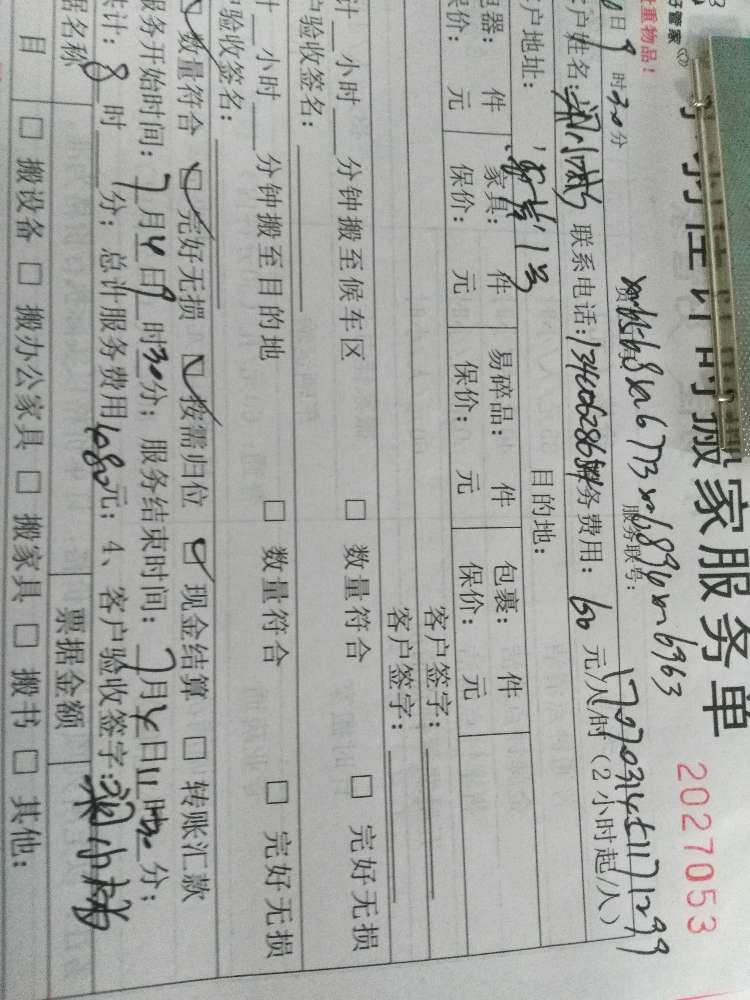 计时搬家服务单
2027053
好管家
贵重物品！
日9时30分
服务联号：
客户姓名： 联系电话： 服务费用：60元/人/时（2小时起/人）
客户地址： 目的地：
电器： 件 家具： 件 易碎品： 件 包裹： 件
保价： 元 保价： 元 保价： 元 保价： 元
客户签字：
客户签字：
计 小时 分钟搬至候车区 □ 数量符合 □ 完好无损
户验收签名：
计 小时 分钟搬至目的地 □ 数量符合 □ 完好无损
户验收签名：
数量符合 □ 完好无损 □ 按需归位 □ 现金结算 □ 转账汇款
服务开始时间：7月4日9时30分；服务结束时间：7月4日11时30分；
共计：8时 分；总计服务费用1080元；4、客户验收签字：
据名称 票据金额
目 □ 搬设备 □ 搬办公家具 □ 搬家具 □ 搬书 □ 其他：